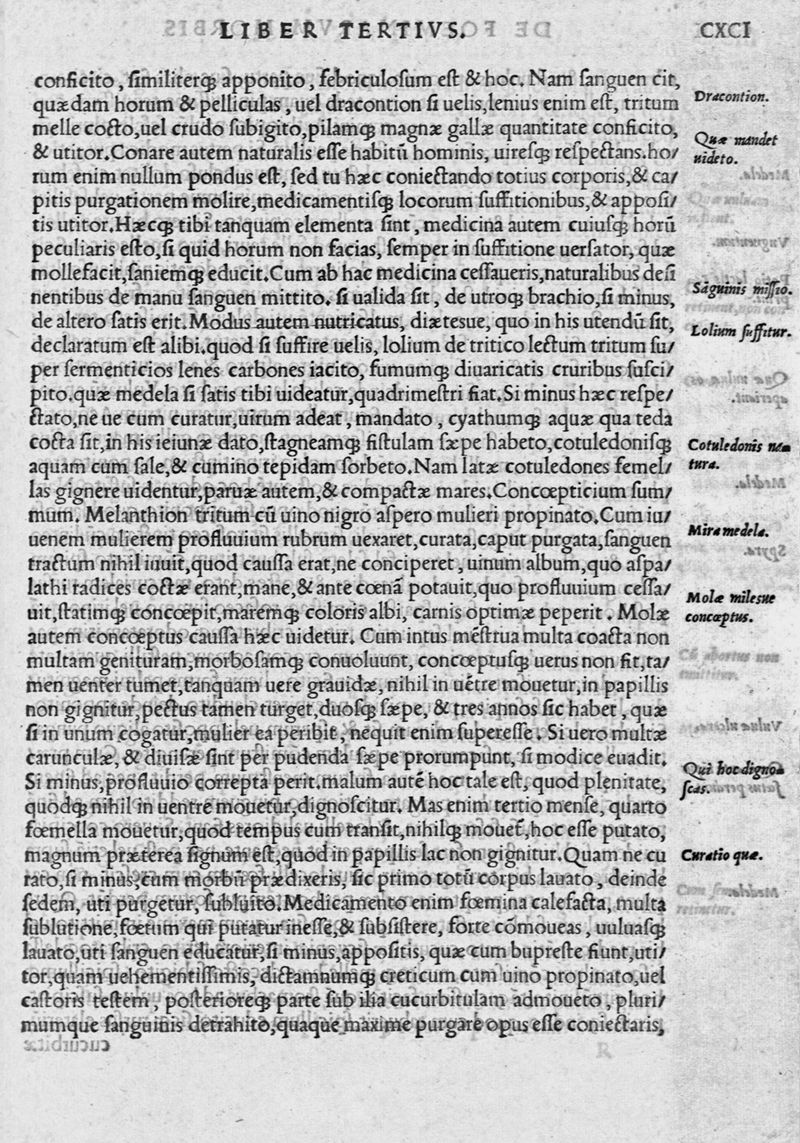 LIBER TERTIVS.
CXCI
conficito, similiterq́ꝫ apponito, febriculosum est & hoc. Nam sanguen cit,
quædam horum & pelliculas, uel dracontion si uelis, lenius enim est, tritum
melle cocto, uel crudo subigito, pilamqꝫ magnæ gallæ quantitate conficito,
& utitor. Conare autem naturalis esse habitũ hominis, uiresqꝫ respectans. ho/
rum enim nullum pondus est, sed tu hæc coniectando totius corporis, & ca/
pitis purgationem molire, medicamentisqꝫ locorum suffitionibus, & apposi/
tis utitor. Hæcqꝫ tibi tanquam elementa sint, medicina autem cuiusqꝫ horũ
peculiaris esto, si quid horum non facias, semper in suffitione uersator, quæ
mollefacit, saniemqꝫ educit. Cum ab hac medicina cessaueris, naturalibus desi
nentibus de manu sanguen mittito. si ualida sit, de utroqꝫ brachio, si minus,
de altero satis erit. Modus autem nutricatus, diætesue, quo in his utendũ sit,
declaratum est alibi. quod si suffire uelis, lolium de tritico lectum tritum su/
per sermenticios lenes carbones iacito, fumumqꝫ diuaricatis cruribus susci/
pito. quæ medela si satis tibi uideatur, quadrimestri fiat. Si minus hæc respe/
ctato, ne ue cum curatur, uirum adeat, mandato, cyathumqꝫ aquæ qua teda
cocta sit, in his ieiunæ dato, stagneamqꝫ fistulam sæpe habeto, cotuledonisqꝫ
aquam cum sale, & cumino tepidam sorbeto. Nam latæ cotuledones femel/
las gignere uidentur, paruæ autem, & compactæ mares. Concœpticium sum/
mum. Melanthion tritum cũ uino nigro aspero mulieri propinato. Cum iu/
uenem mulierem profluuium rubrum uexaret, curata, caput purgata, sanguen
tractum nihil iuuit, quod caussa erat, ne conciperet, uinum album, quo aspa/
lathi radices coctæ erant, mane, & ante cœnã potauit, quo profluuium cessa/
uit, statimqꝫ concœpit, maremqꝫ coloris albi, carnis optimæ peperit. Molæ
autem concœptus caussa hæc uidetur. Cum intus mẽstrua multa coacta non
multam genituram, morbosamqꝫ conuoluunt, concœptusqꝫ uerus non fit, ta/
men uenter tumet, tanquam uere grauidæ, nihil in uẽtre mouetur, in papillis
non gignitur, pectus tamen turget, duosqꝫ sæpe, & tres annos sic habet, quæ
si in unum cogatur, mulier ea peribit, nequit enim superesse. Si uero multæ
carunculæ, & diuisæ sint per pudenda sæpe prorumpunt, si modice euadit.
Si minus, profluuio correpta perit. malum autẽ hoc tale est, quod plenitate,
quodqꝫ nihil in uentre mouetur, dignoscitur. Mas enim tertio mense, quarto
fœmella mouetur, quod tempus cum transit, nihilqꝫ mouet᷑, hoc esse putato,
magnum præterea signum est, quod in papillis lac non gignitur. Quam ne cu
rato, si minus, cum morbũ prædixeris, sic primo totũ corpus lauato, deinde
sedem, uti purgetur, subluito. Medicamento enim fœmina calefacta, multa
sublutione, fœtum qui putatur inesse, & subsistere, forte cõmoueas, uuluasqꝫ
lauato, uti sanguen educatur, si minus, appositis, quæ cum bupreste fiunt, uti/
tor, quam uehementissimis, dictamnumqꝫ creticum cum uino propinato, uel
castoris testem, posterioreqꝫ parte sub ilia cucurbitulam admoueto, pluri/
mumque sanguinis detrahito, quaque maxime purgare opus esse coniectaris,
Dracontion.
Quæ mandet
uideto.
Sãguinis missio.
Lolium suffitur.
Cotuledonis na⸗
tura.
Mira medela.
Molæ milesue
concœptus.
Qui hoc digno⸗
scas.
Curatio quæ.